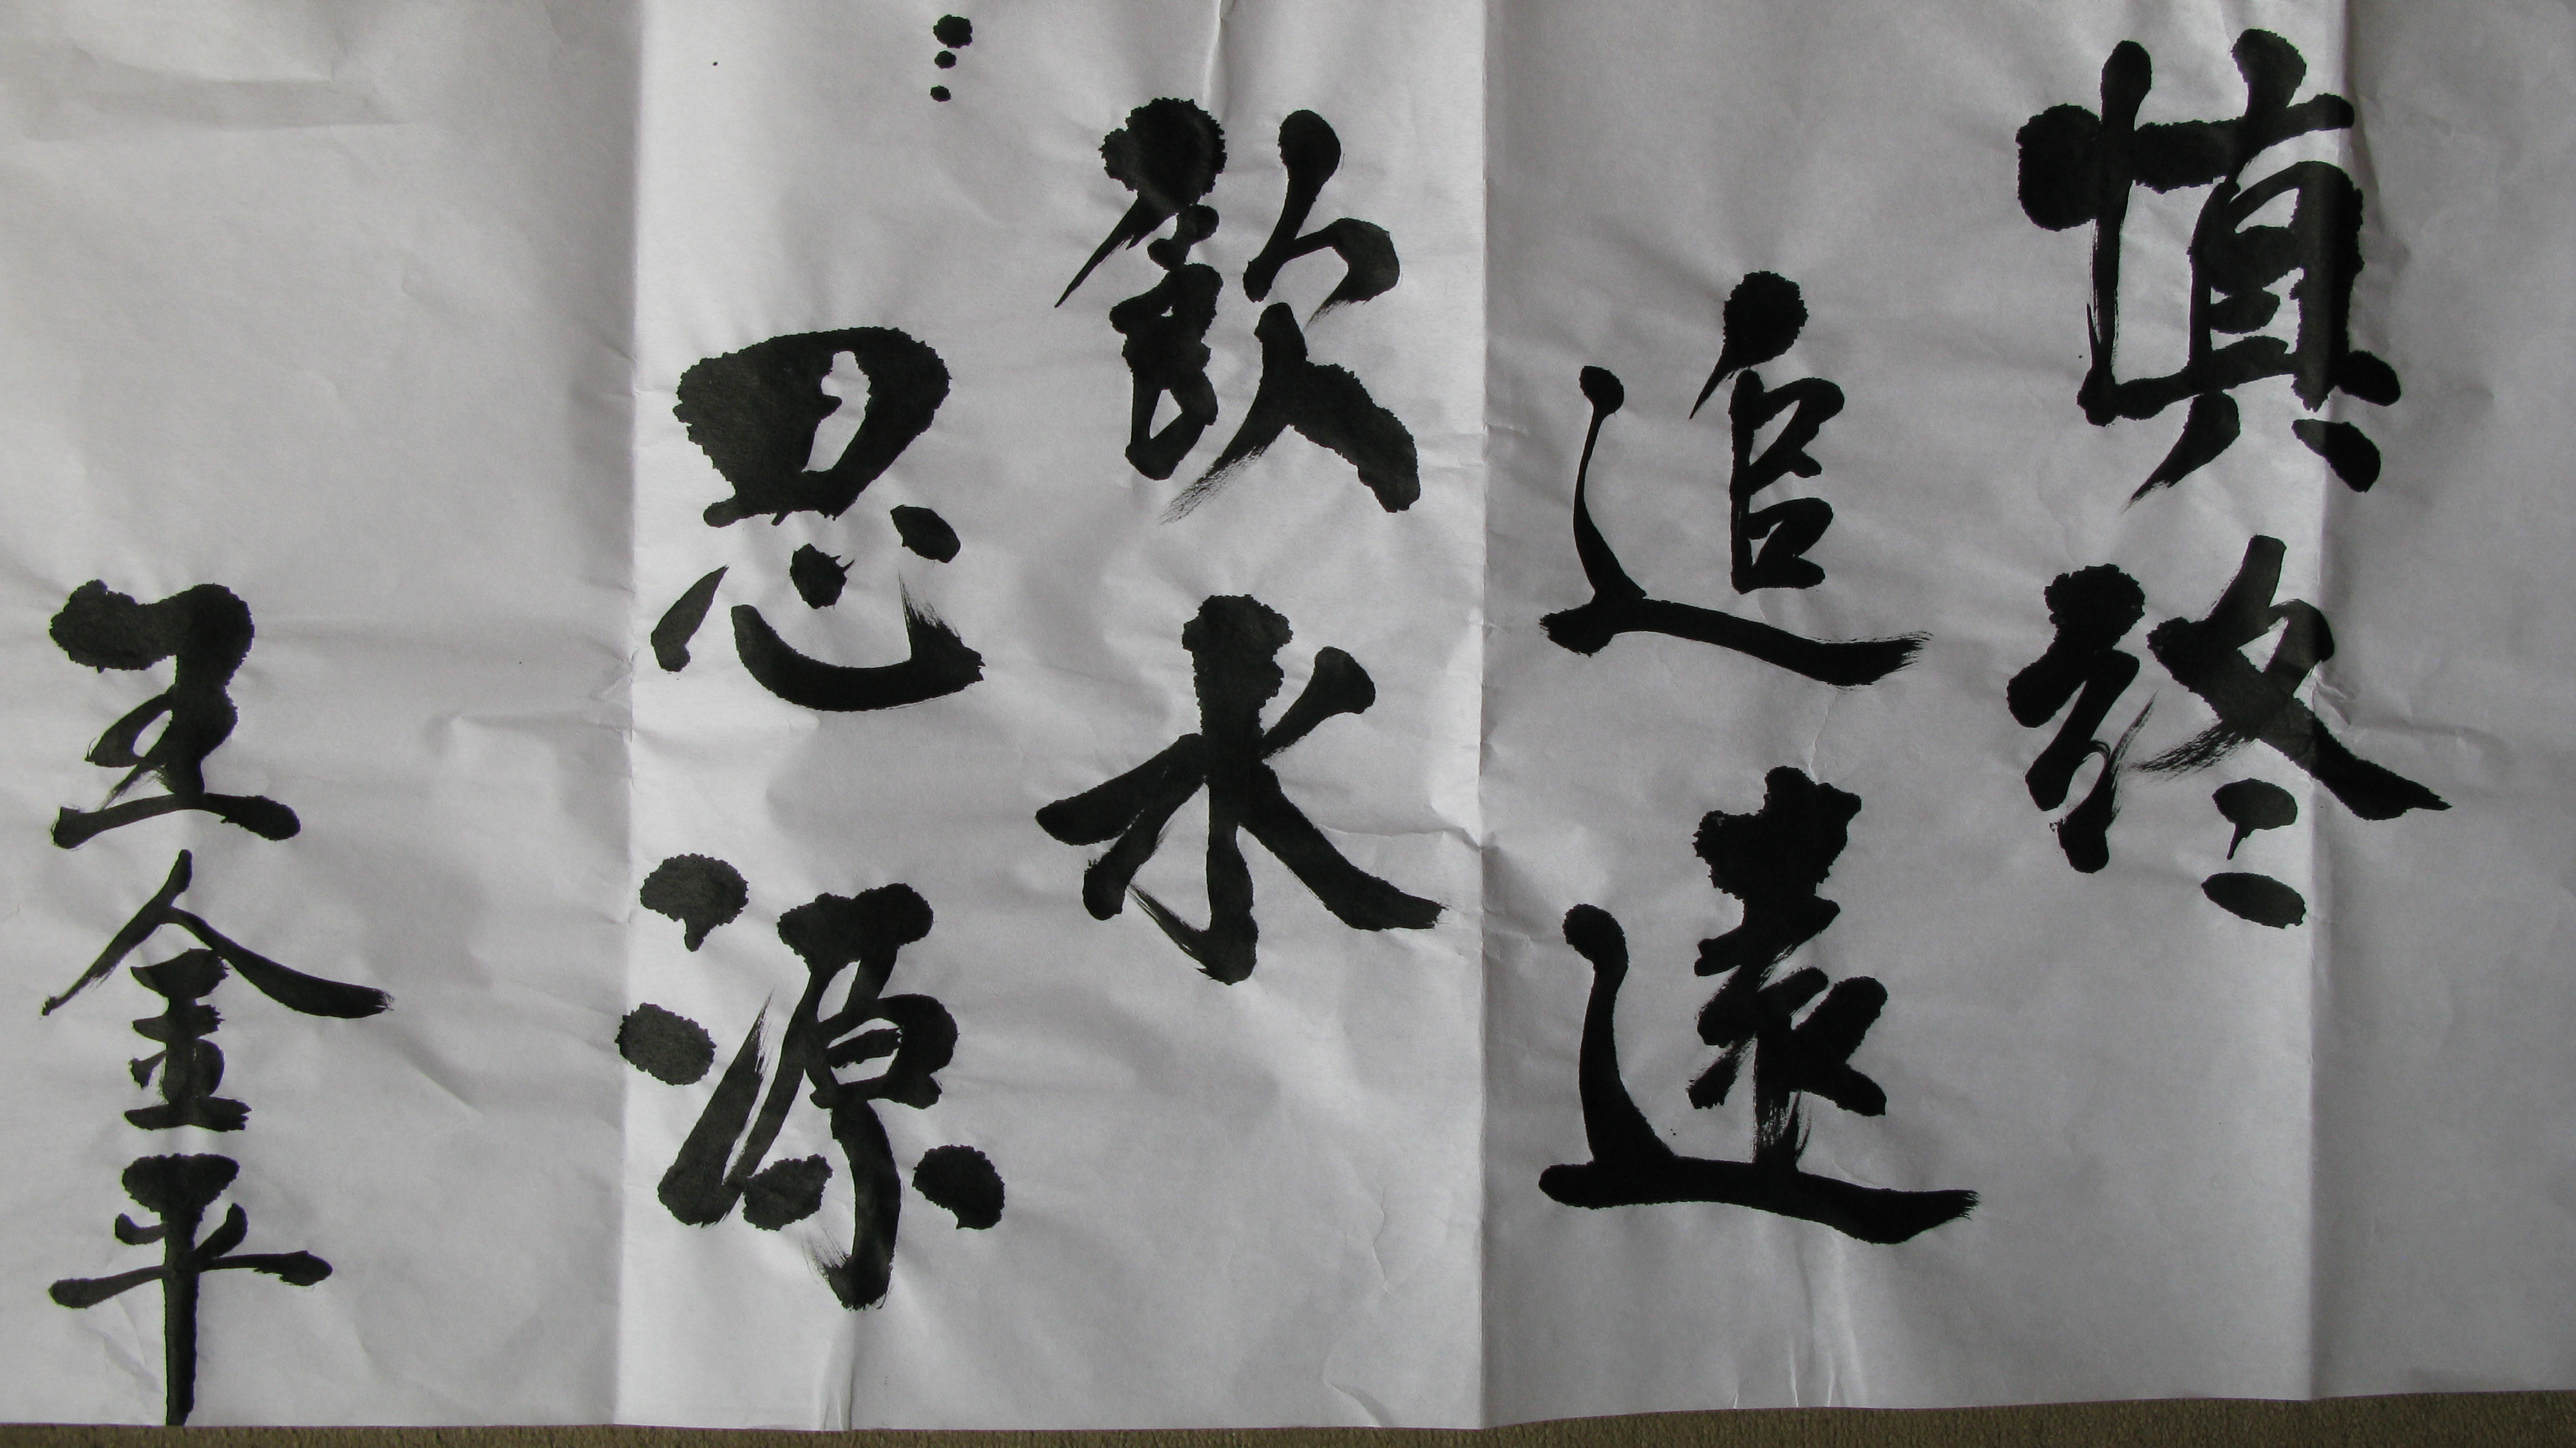 慎終
追遠
飲水
思源
王金平